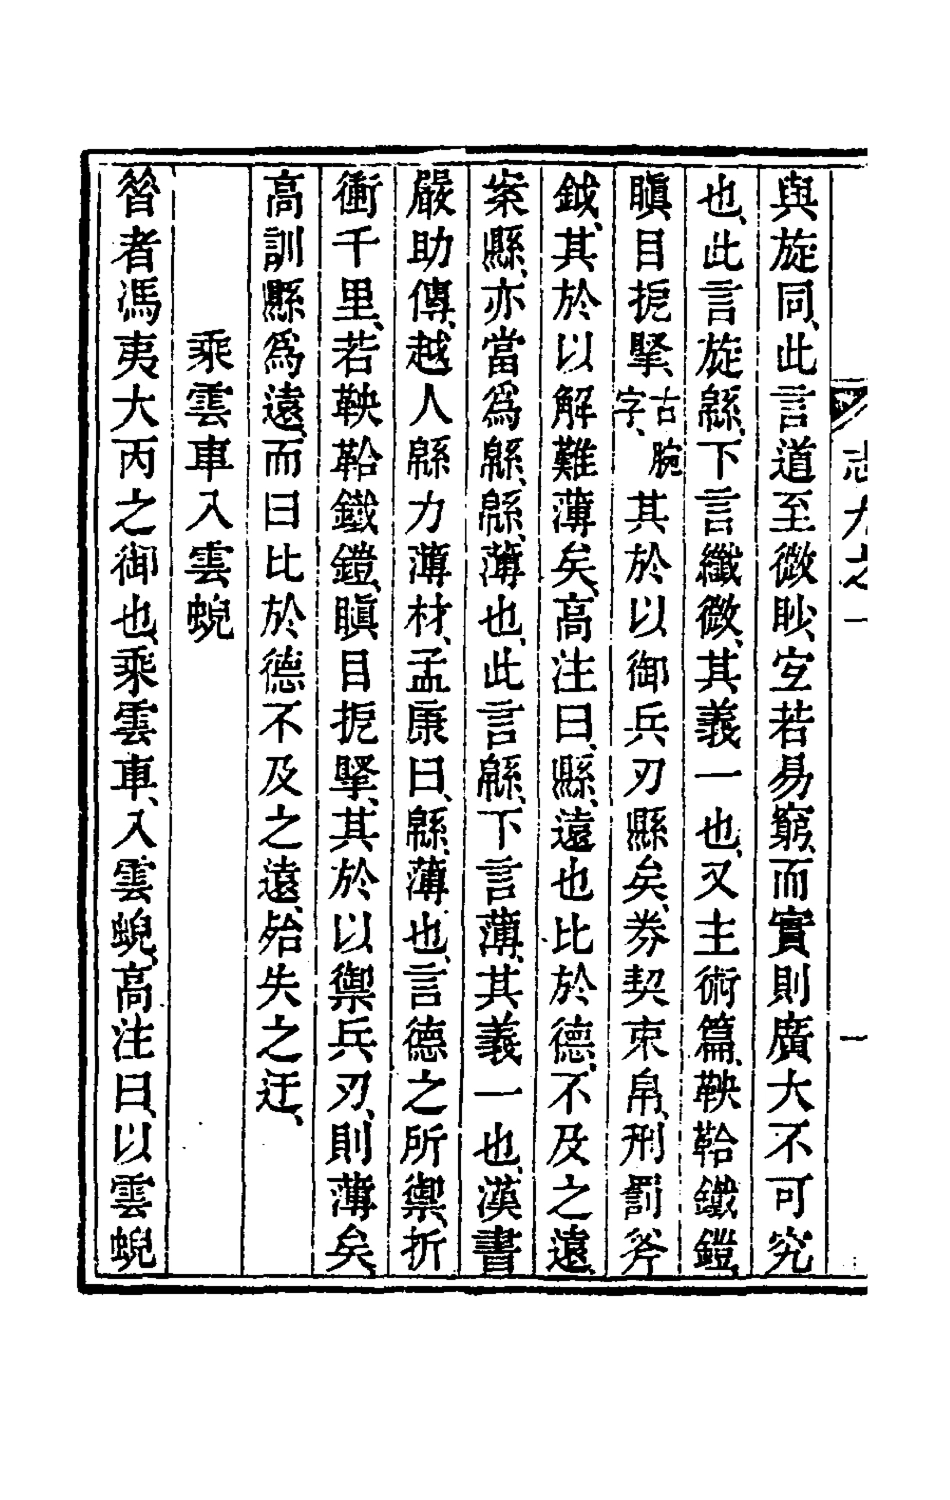 志九之一
一
與旋同、此言道至微眇、宐若易窮、而實則廣大不可究
也、此言旋緜、下言纖微、其義一也、又主術篇、鞅鞈鐵鎧、
瞋目扼掔、古腕字、其於以御兵刃縣矣、券契束帛、刑罰斧
鉞、其於以解難薄矣、高注曰、縣、遠也比於德、不及之遠、
案縣、亦當爲緜、緜、薄也、此言緜、下言薄、其義一也、漢書
嚴助傳、越人緜力薄材、孟康曰、緜、薄也、言德之所禦、折
衝千里、若鞅鞈鐵鎧、瞋目扼掔、其於以禦兵刃、則薄矣、
高訓縣爲遠、而曰比於德不及之遠、殆失之迂、
乘雲車入雲蜺
昝者馮夷大丙之御也、乘雲車、入雲蜺、高注曰、以雲蜺